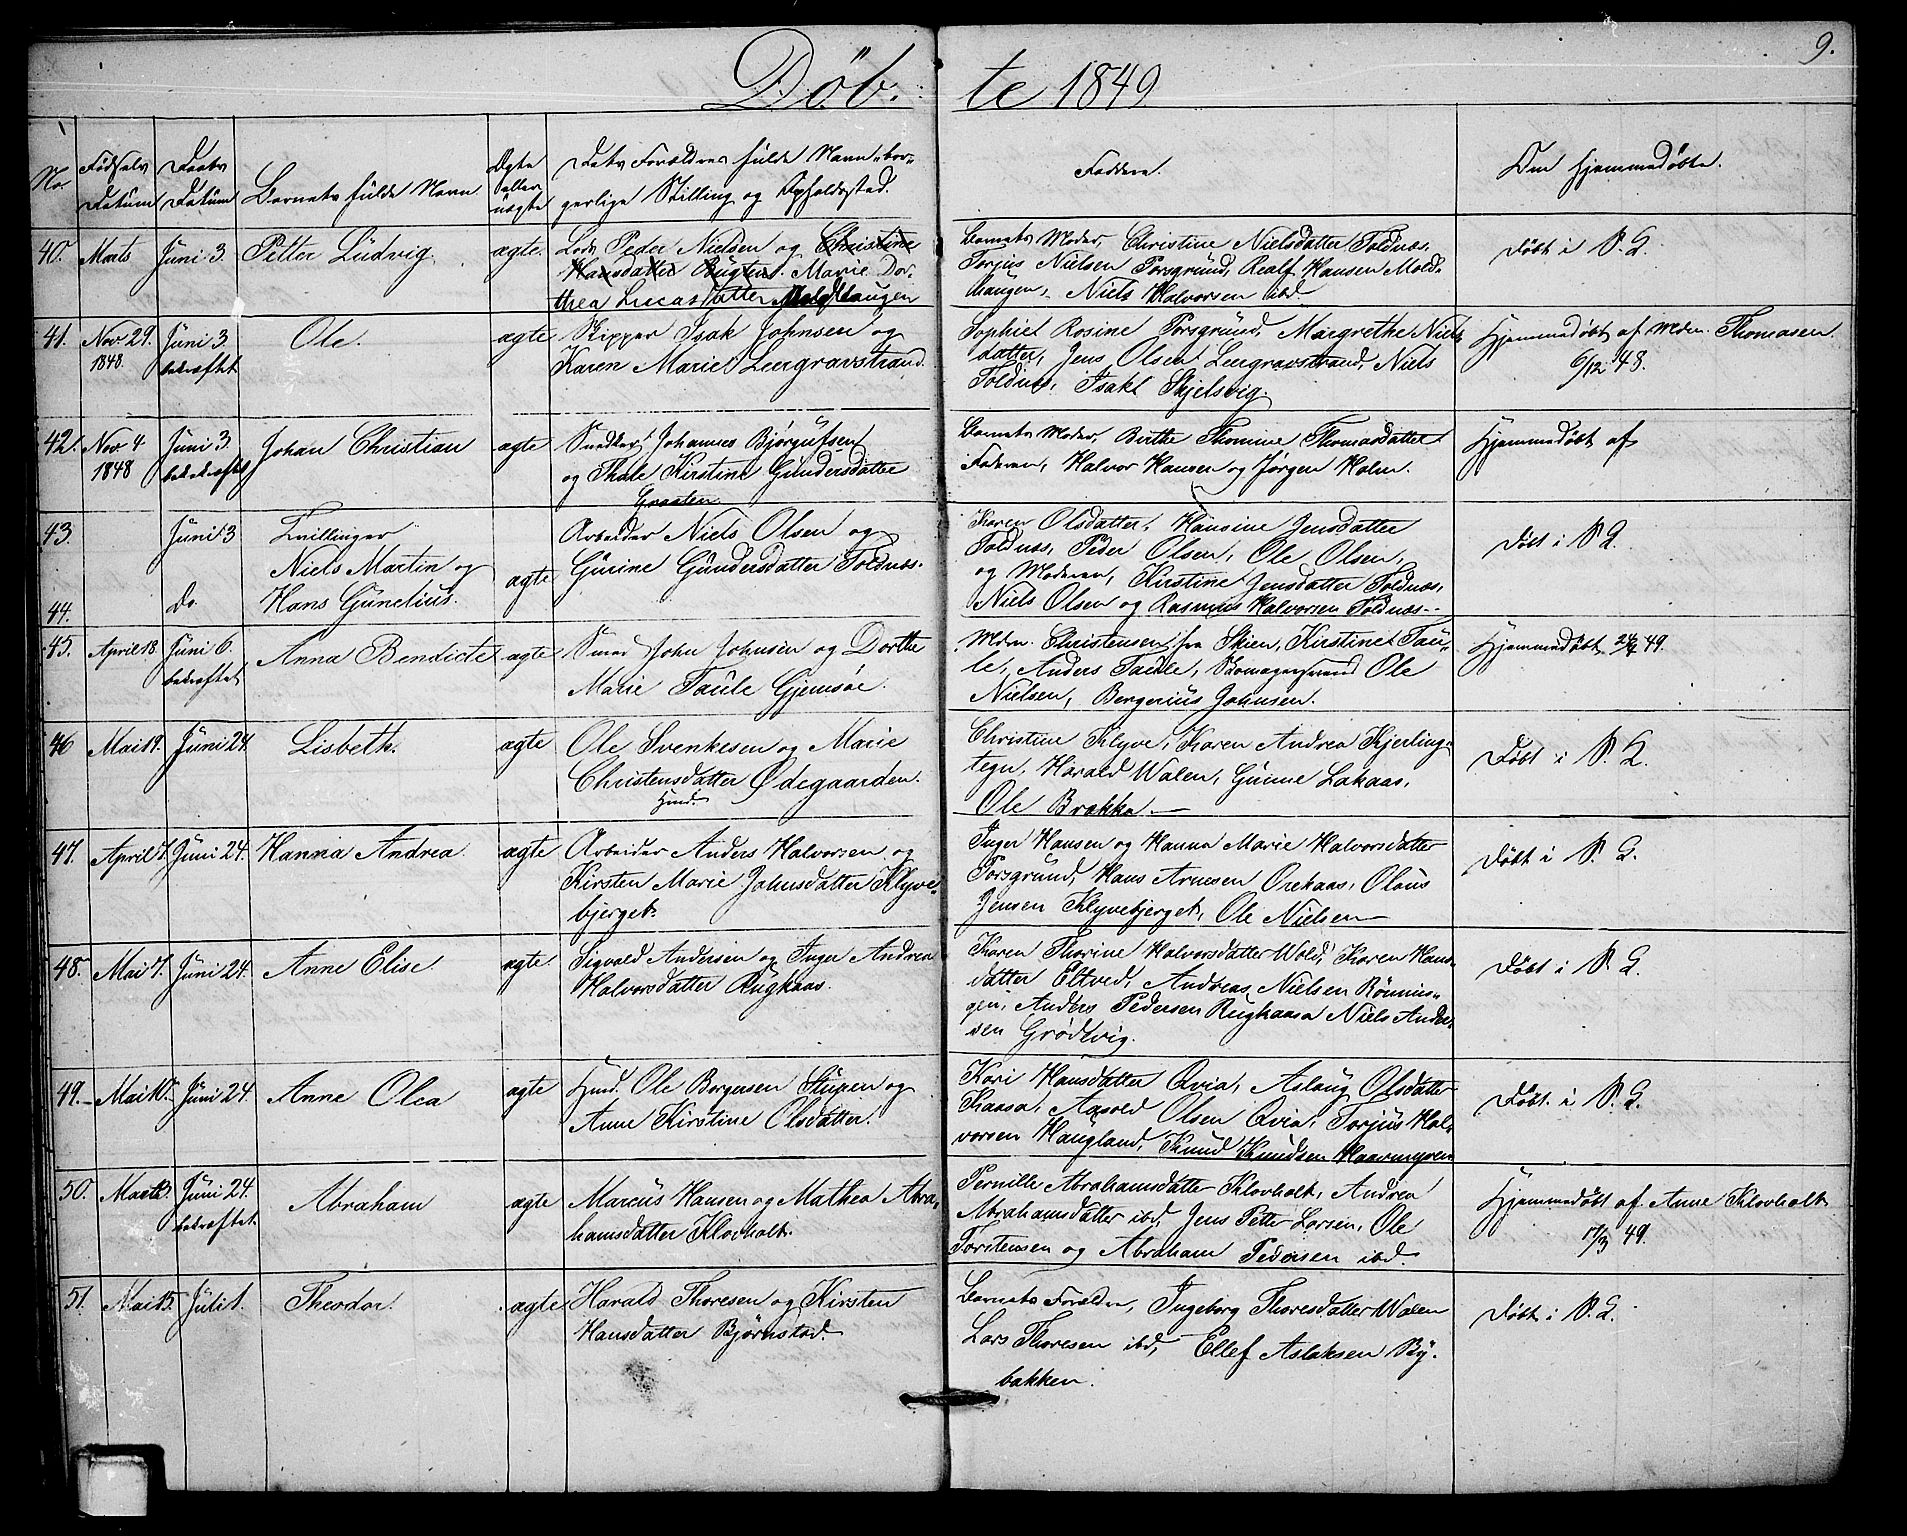 9.
Døb. te 1849
No. Fødsels Datum Daabs Datum Barnets fulde Navn. Ægte eller uægte Dets Forældres fulde Navn "bor-
gerlige Stilling og Opholdssted. Faddere. Den hjemmedøbte.
40. Marts Juni 3. Petter Ludvig. ægte. Lods Peder Nielsen og Christine
Hansdatter Bugten. Marie Dor-
thea Lucasdatter Moldhaugen
Barnets Moder, Christine Nielsdatter Toldnæs,
Torjus Nielsen Porsgrund, Realf Hansen Mold-
haugen, Niels Halvorsen ibd
Døbt i P. G.
41. Nov 29. 1848. Juni 3. bekræftet Ole. ægte Skipper Isak Johnsen og
Karen Marie Leergravstrand.
Sophie Rosine Porsgrund, Margrethe Niels
datter, Jens Olsen Leergravstrand, Niels
Toldnæs, Isak Skjelsvig.
Hjemmedøbt af Mdm. Thomasen.
6/12 48.
42. Nov. 4 1848 Juni 3 bekræftet Johan Christian ægte Snedker Johannes Bjørgufsen
og Thale Kirstine Gundersdatter
Graaten
Barnets Moder, Birthe Thomine Thomasdatter
Faderen, Halvor Hansen og Jørgen Holm.
Hjemmedøbt af
43. Juni 3 Tvillinger
Niels Martin og
44. Do. Hans Gunelius. ægte
Arbeider Niels Olsen og
Gurine Gundersdatter Toldnæs.
Karen Olsdatter, Hansine Jensdatter
Toldnæs, Peder Olsen, Ole Olsen,
og Moderen, Kirstine Jensdatter Toldnæs,
Niels Olsen og Rasmus Halvorsen Toldnæs.
Døbt i P. G.
45. April 18. Juni 6. bekræftet Anna Bendicte ægte Smed John Johnsen og Dorthe
Marie Taule Gjemsøe.
Mdm. Christensen fra Skien, Kirstine Tau-
le, Anders Taule, Skomagersvend Ole
Nielsen, Bergerius Johnsen.
Hjemmedøbt 24/4 49.
46 Mai 19. Juni 24. Lisbeth. ægte Ole Svenkesen og Marie
Christensdatter Ødegaarden.
Huus.
Christine Klyve, Karen Andrea Kjerling-
tegn, Harald Walen, Gunne Lakaas,
Ole Brakka.
Døbt i P. G.
47. April 7. Juni 24. Hanna Andrea. ægte Arbeider Anders Halvorsen og
Kirsten Marie Johnsdatter Klyve-
bjerget.
Inger Hansen og Hanna Marie Halvorsdatter
Porsgrund, Hans Arnesen Orekaas, Olaus
Jensen Klyvebjerget, Ole Nielsen
Døbt i P. G.
48. Mai 7. Juni 24. Anne Elise. ægte. Sigvald Andersen og Inger Andrea
Halvorsdatter Rugkaas.
Karen Thorine Halvorsdatter Wold, Karen Hans-
datter Eltved, Andreas Nielsen Rønnin-
gen, Anders Pedersen Rugkaasa Niels Ander-
sen Grødsvig.
Døbt i P. G.
49. Mai 10. Juni 24 Anne Olea ægte Huusd. Ole Borgersen Stupen og
Anne Kirstine Olsdatter.
Kari Hansdatter Qvia, Aslaug Olsdatter
Kaasa, Aasold Olsen Qvia, Torjus Hal-
vorsen Haugland, Knud Knudsen Haavmyren
Døbt i P. G.
50. Marts Juni 24. bekræftet. Abraham ægte Marcus Hansen og Mathea Abra-
hamsdatter Klovholt.
Pernille Abrahamsdatter Klovholt, Andrea
Abrahamsdatter ibd, Jens Petter Larsen, Ole
Torstensen og Abraham Pedersen ibd.
Hjemmedøbt af Anne Klovholt
17/3 49.
51. Mai 15. Juli 1. Theodor. ægte Harald Thoresen og Kirsten
Hansdatter Bjørnstad
Barnets Forældre, Ingeborg Thoresdatter Walen
Lars Thoresen ibd, Ellef Aslaksen By-
bakken.
Døbt i P. G.